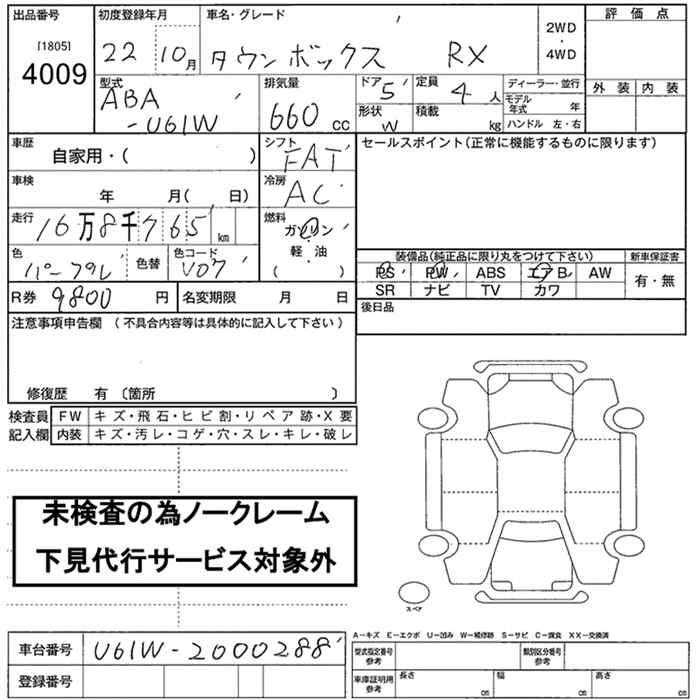 出品番号 初度登録年月 車名・グレード 評価点
[1805] 4009 22 10月 タウンボックス RX 2WD・4WD
型式 排気量 ドア 定員 ディーラー・並行 外装 内装
ABA-U61W 660cc 5 4人 モデル年式 年
形状 W 積載 kg ハンドル 左・右
車歴 シフト セールスポイント(正常に機能するものに限ります)
自家用・( ) FAT
車検 冷房
年 月( 日) AC
走行 燃料
16万8千765km ガソリン・軽・油
色 色替 色コード ( )
パープル V07
装備品(純正品に限り丸をつけて下さい) 新車保証書
PS PW ABS エアB AW 有・無
SR ナビ TV カワ
R券 9800円 名変期限 月 日 後日品
注意事項申告欄 (不具合内容等は具体的に記入して下さい)
修復歴 有 〔箇所 〕
検査員 FW キズ・飛石・ヒビ割・リペア跡・X要
記入欄 内装 キズ・汚レ・コゲ・穴・スレ・キレ・破レ
未検査の為ノークレーム
下見代行サービス対象外
スペア
A−キズ E−エクボ U−凹み W−補修跡 S−サビ C−腐食 XX−交換済
車台番号 U61W-2000288
型式指定番号 参考 類別区分番号 参考
登録番号
車庫証明用 参考 長さ cm 幅 cm 高さ cm